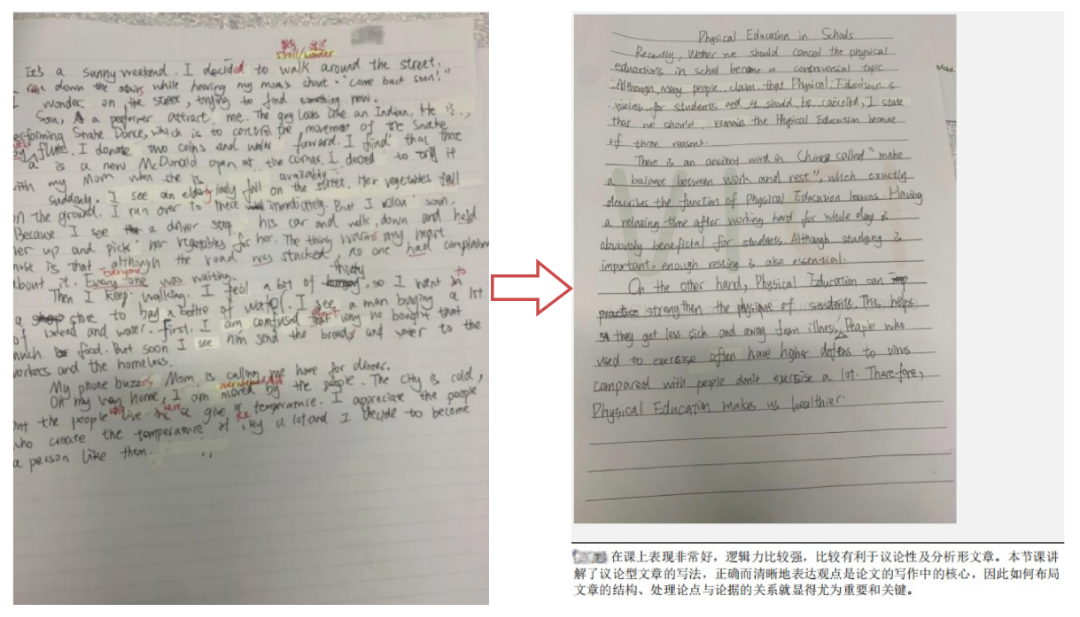 stroll/wander
It's a sunny weekend. I decided to walk around the street.
down the stairs while hearing my mom's shout: "come back soon!"
I wonder on the street, trying to find something new.
Soon, a performer attract me. The guy looks like an Indian. He is
performing Snake Dance, which is to control the movement of the Snake
by flute. I donate two coins and walk forward. I find that there
is a new McDonald open at the corner. I decied to try it
with my Mom when she is available.
Suddenly, I see an elderly lady fall on the street. Her vegetables fell
on the ground. I ran over to there immediately. But I relax soon.
Because I see a driver stop his car and walk down and held
her up and pick her vegetables for her. The thing warms my heart
most is that although the road was stucked, no one had complained
everyone
about it. Every one was waiting.
thirsty
Then I keep walking. I feel a bit of so I went in to
a store to buy a bottle of water. I see a man buying a lot
of bread and water. first, I am confused that why he bought that
much food. But soon I see him send the breads and water to the
workers and the homeless.
My phone buzzs. Mom is calling me home for dinner.
On my way home, I am moved by the people. The city is cold,
but the people live give it temperature. I appreciate the people
who create the temperature of city a lot and I decide to become
a person like them.
Physical Education in Schools
Recently, wether we should cancel the physical
educations in school became a controversial topic
Although many people claim that Physical Educaion is
useless for students and it should be cancelled, I state
that we should remain the Physical Education because
of three reasons.
There is an ancient word in Chinese called "make
a balance between work and rest", which exactly
describes the function of Physical Education lessons. Having
a relaxing time after working hard for whole day is
obviously beneficial for students. Although studying is
important, enough resting is also essential.
On the other hand, Physical Education can
practice strengthen the physique of students. This helps
they get less sick and away from illness. People who
used to exercise often have higher defens to virus
compared with people don't exercise a lot. Therefore,
Physical Education makes us healthier.
在课上表现非常好，逻辑力比较强，比较有利于议论性及分析形文章。本节课讲
解了议论型文章的写法，正确而清晰地表达观点是论文的写作中的核心，因此如何布局
文章的结构、处理论点与论据的关系就显得尤为重要和关键。